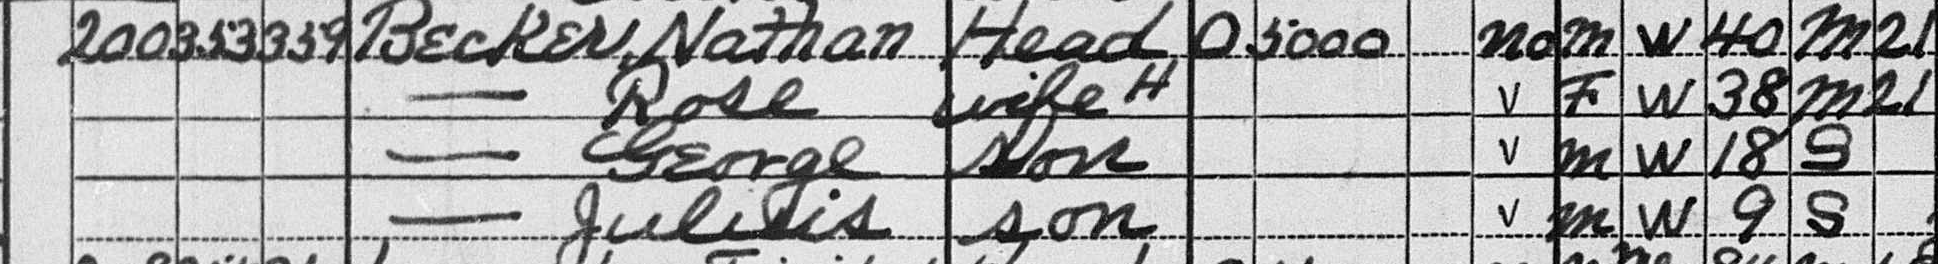 200 353 359 Becker, Nathan Head O 5000 No M W 40 M 21
— Rose wife H V F W 38 M 21
— George Son V M W 18 S
— Julius son V M W 9 S